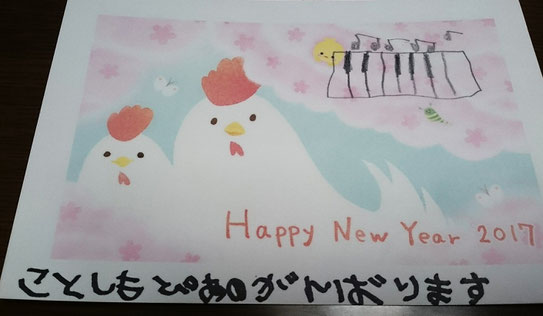 Happy New Year 2017
ことしもぴあのがんばります